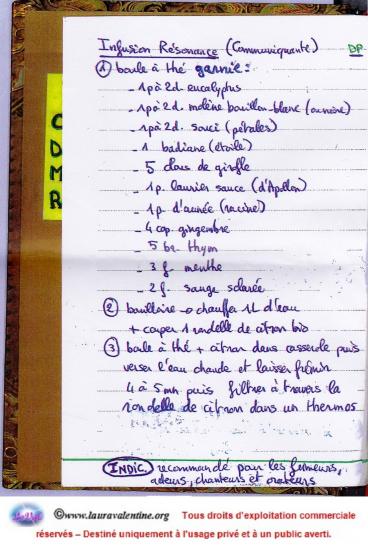 Infusion Résonance (Communiquante) DP
① boule à thé garnie :
- 1p à 2d. eucalyptus
- 1p à 2d. molène bouillon-blanc
- 1p à 2d. souci (pétales)
- 1 badiane (étoile)
- 5 clous de girofle
- 1p. laurier sauce (d'Apollon)
- 1p. d'aunée (racine)
- 4 cop. gingembre
- 5 br. thym
- 3 f. menthe
- 2 f. sauge sclarée
② bouilloire → chauffer 1L d'eau
+ couper 1 rondelle de citron bio
③ boule à thé + citron dans casserole puis
verser l'eau chaude et laisser frémir
4 à 5 mn puis filtrer à travers la
rondelle de citron dans un thermos
INDIC. recommandé pour les fumeurs,
acteurs, chanteurs et orateurs
CDMR
©www.lauravalentine.org Tous droits d'exploitation commerciale
réservés – Destiné uniquement à l'usage privé et à un public averti.